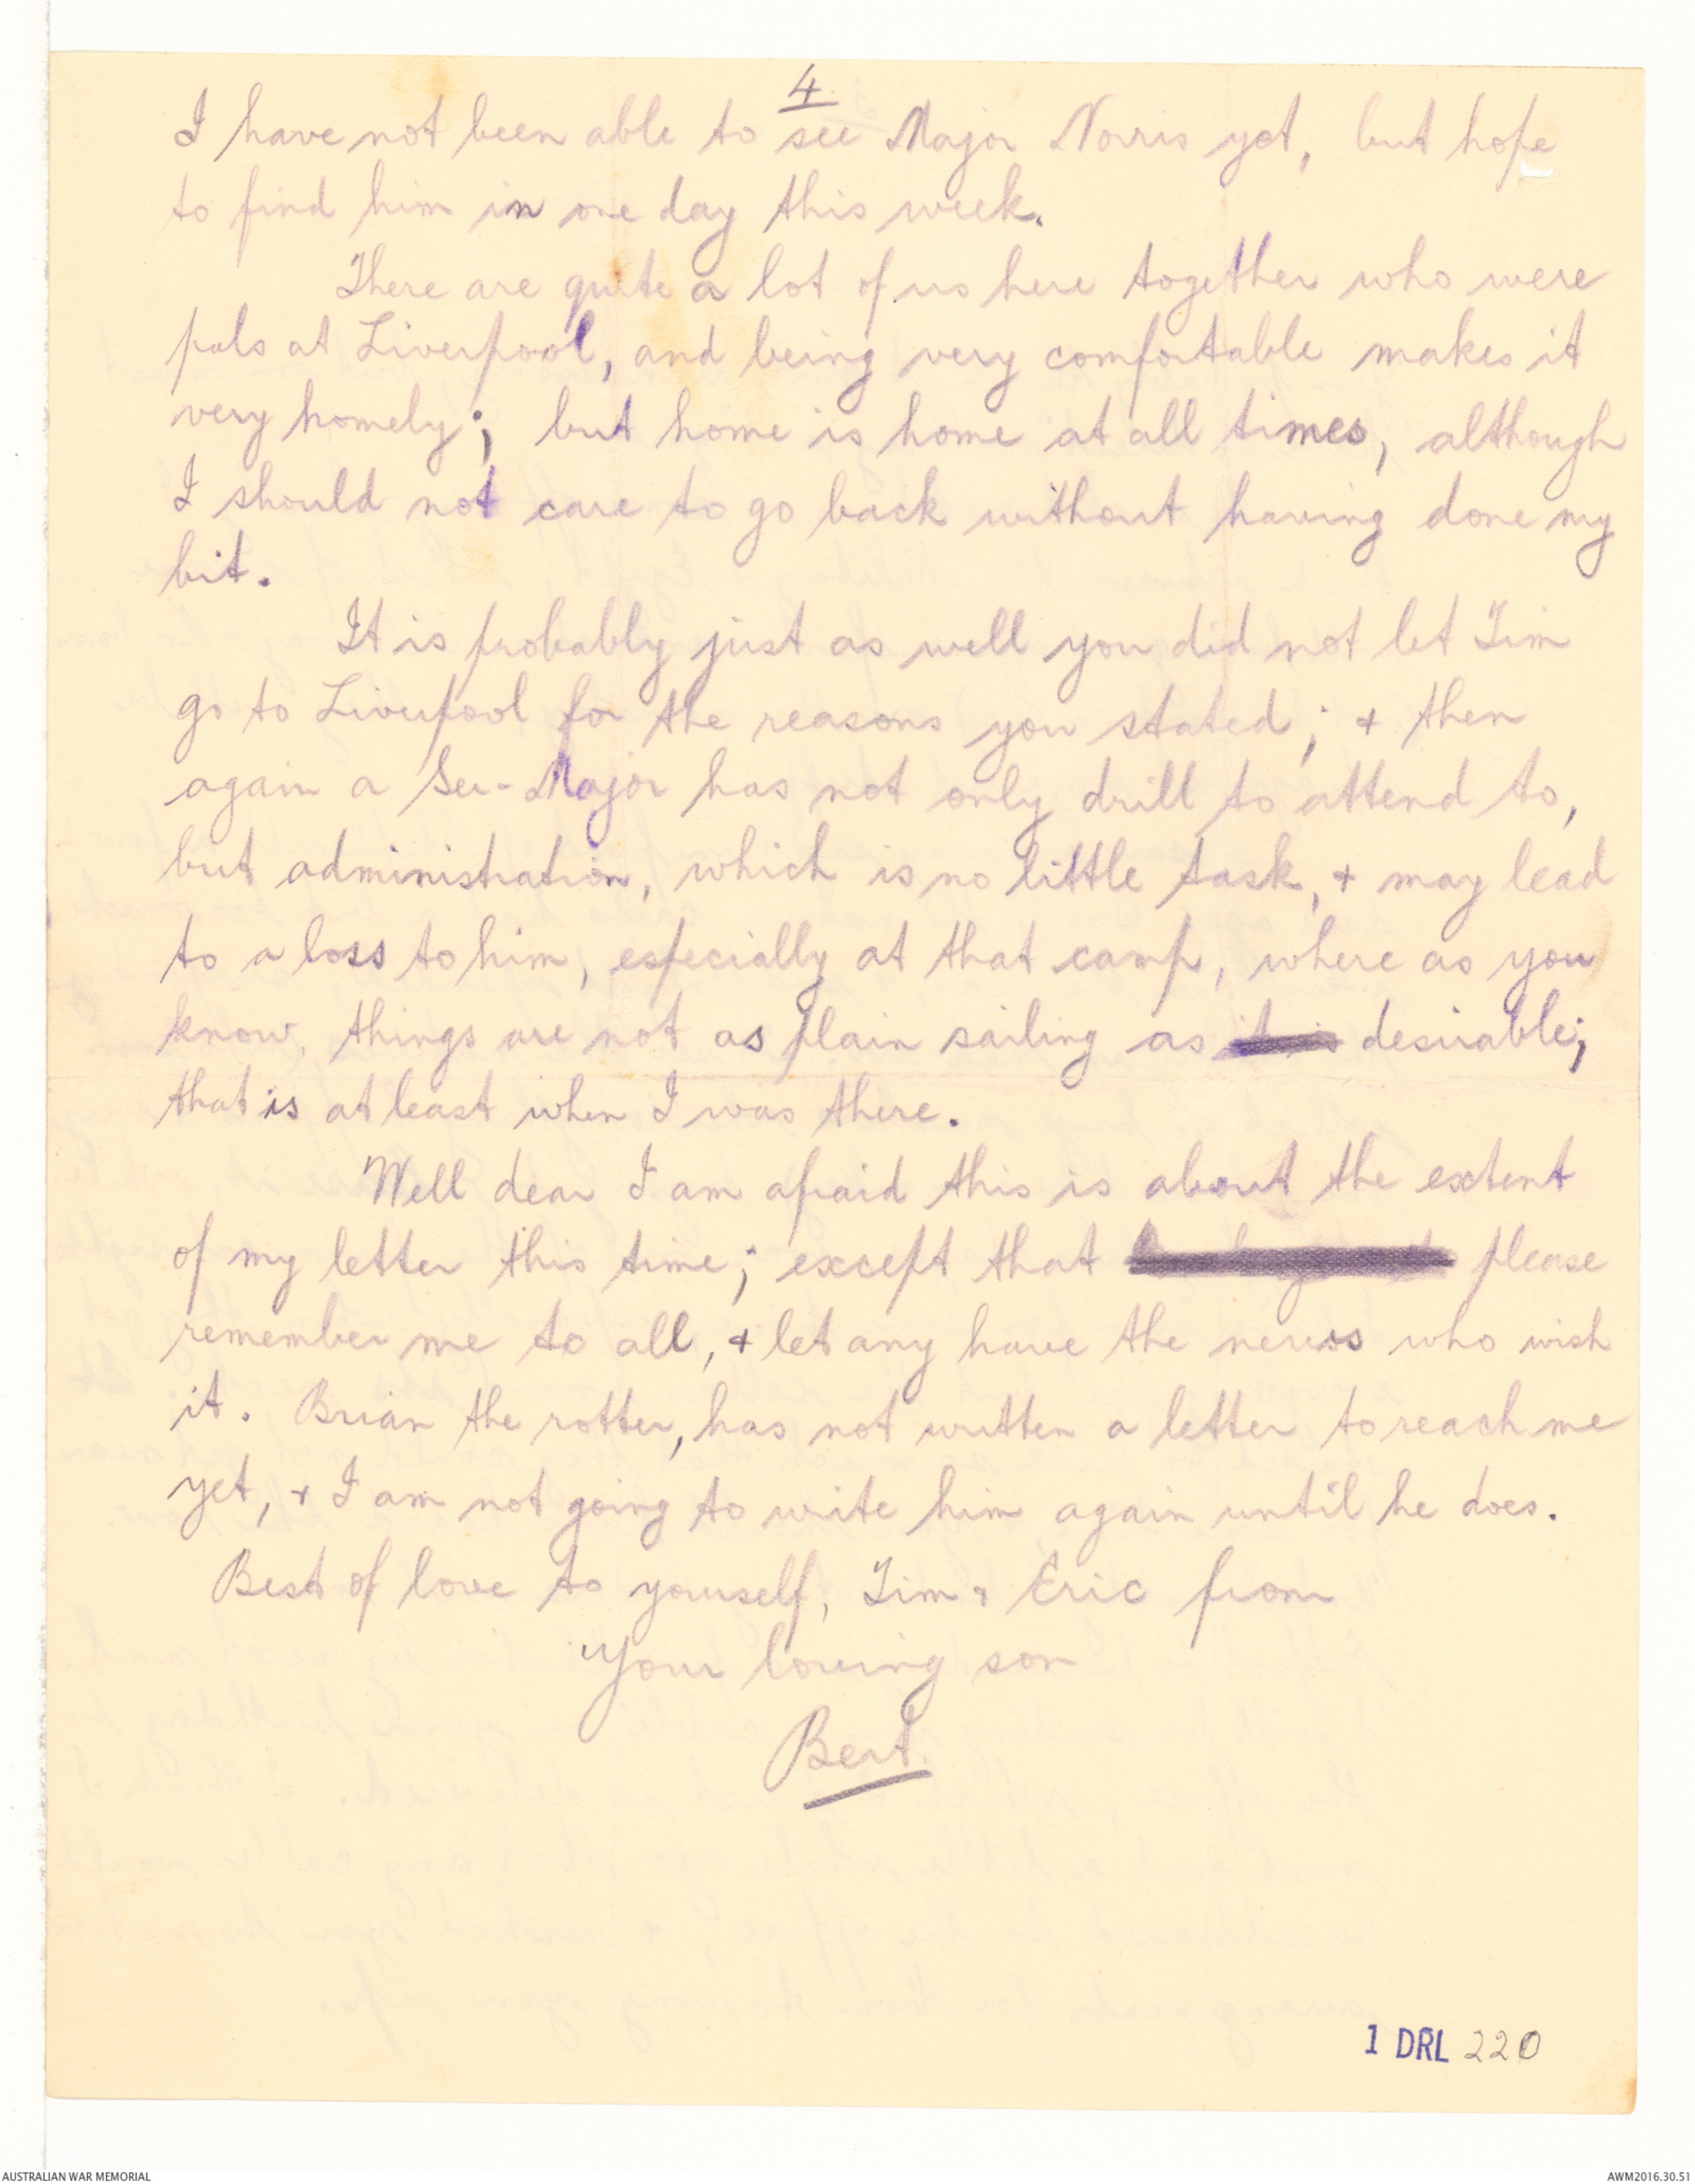 4.
I have not been able to see Major Norris yet, but hope
to find him in one day this week.
There are quite a lot of us here together who were
pals at Liverpool, and being very comfortable makes it
very homely; but home is home at all times, although
I should not care to go back without having done my
bit.
It is probably just as well you did not let Tim
go to Liverpool for the reasons you stated; + then
again a Ser-Major has not only drill to attend to,
but administration, which is no little task, + may lead
to a loss to him, especially at that camp, where as you
know, things are not as plain sailing as it is desirable;
that is at least when I was there.
Well dear I am afraid this is about the extent
of my letter this time; except that please
remember me to all, + let any have the news who wish
it. Brian the rotter, has not written a letter to reach me
yet, + I am not going to write him again until he does.
Best of love to yourself, Tim + Eric from
Your loving son
Bert.
1 DRL 220
AUSTRALIAN WAR MEMORIAL
AWM2016.30.51